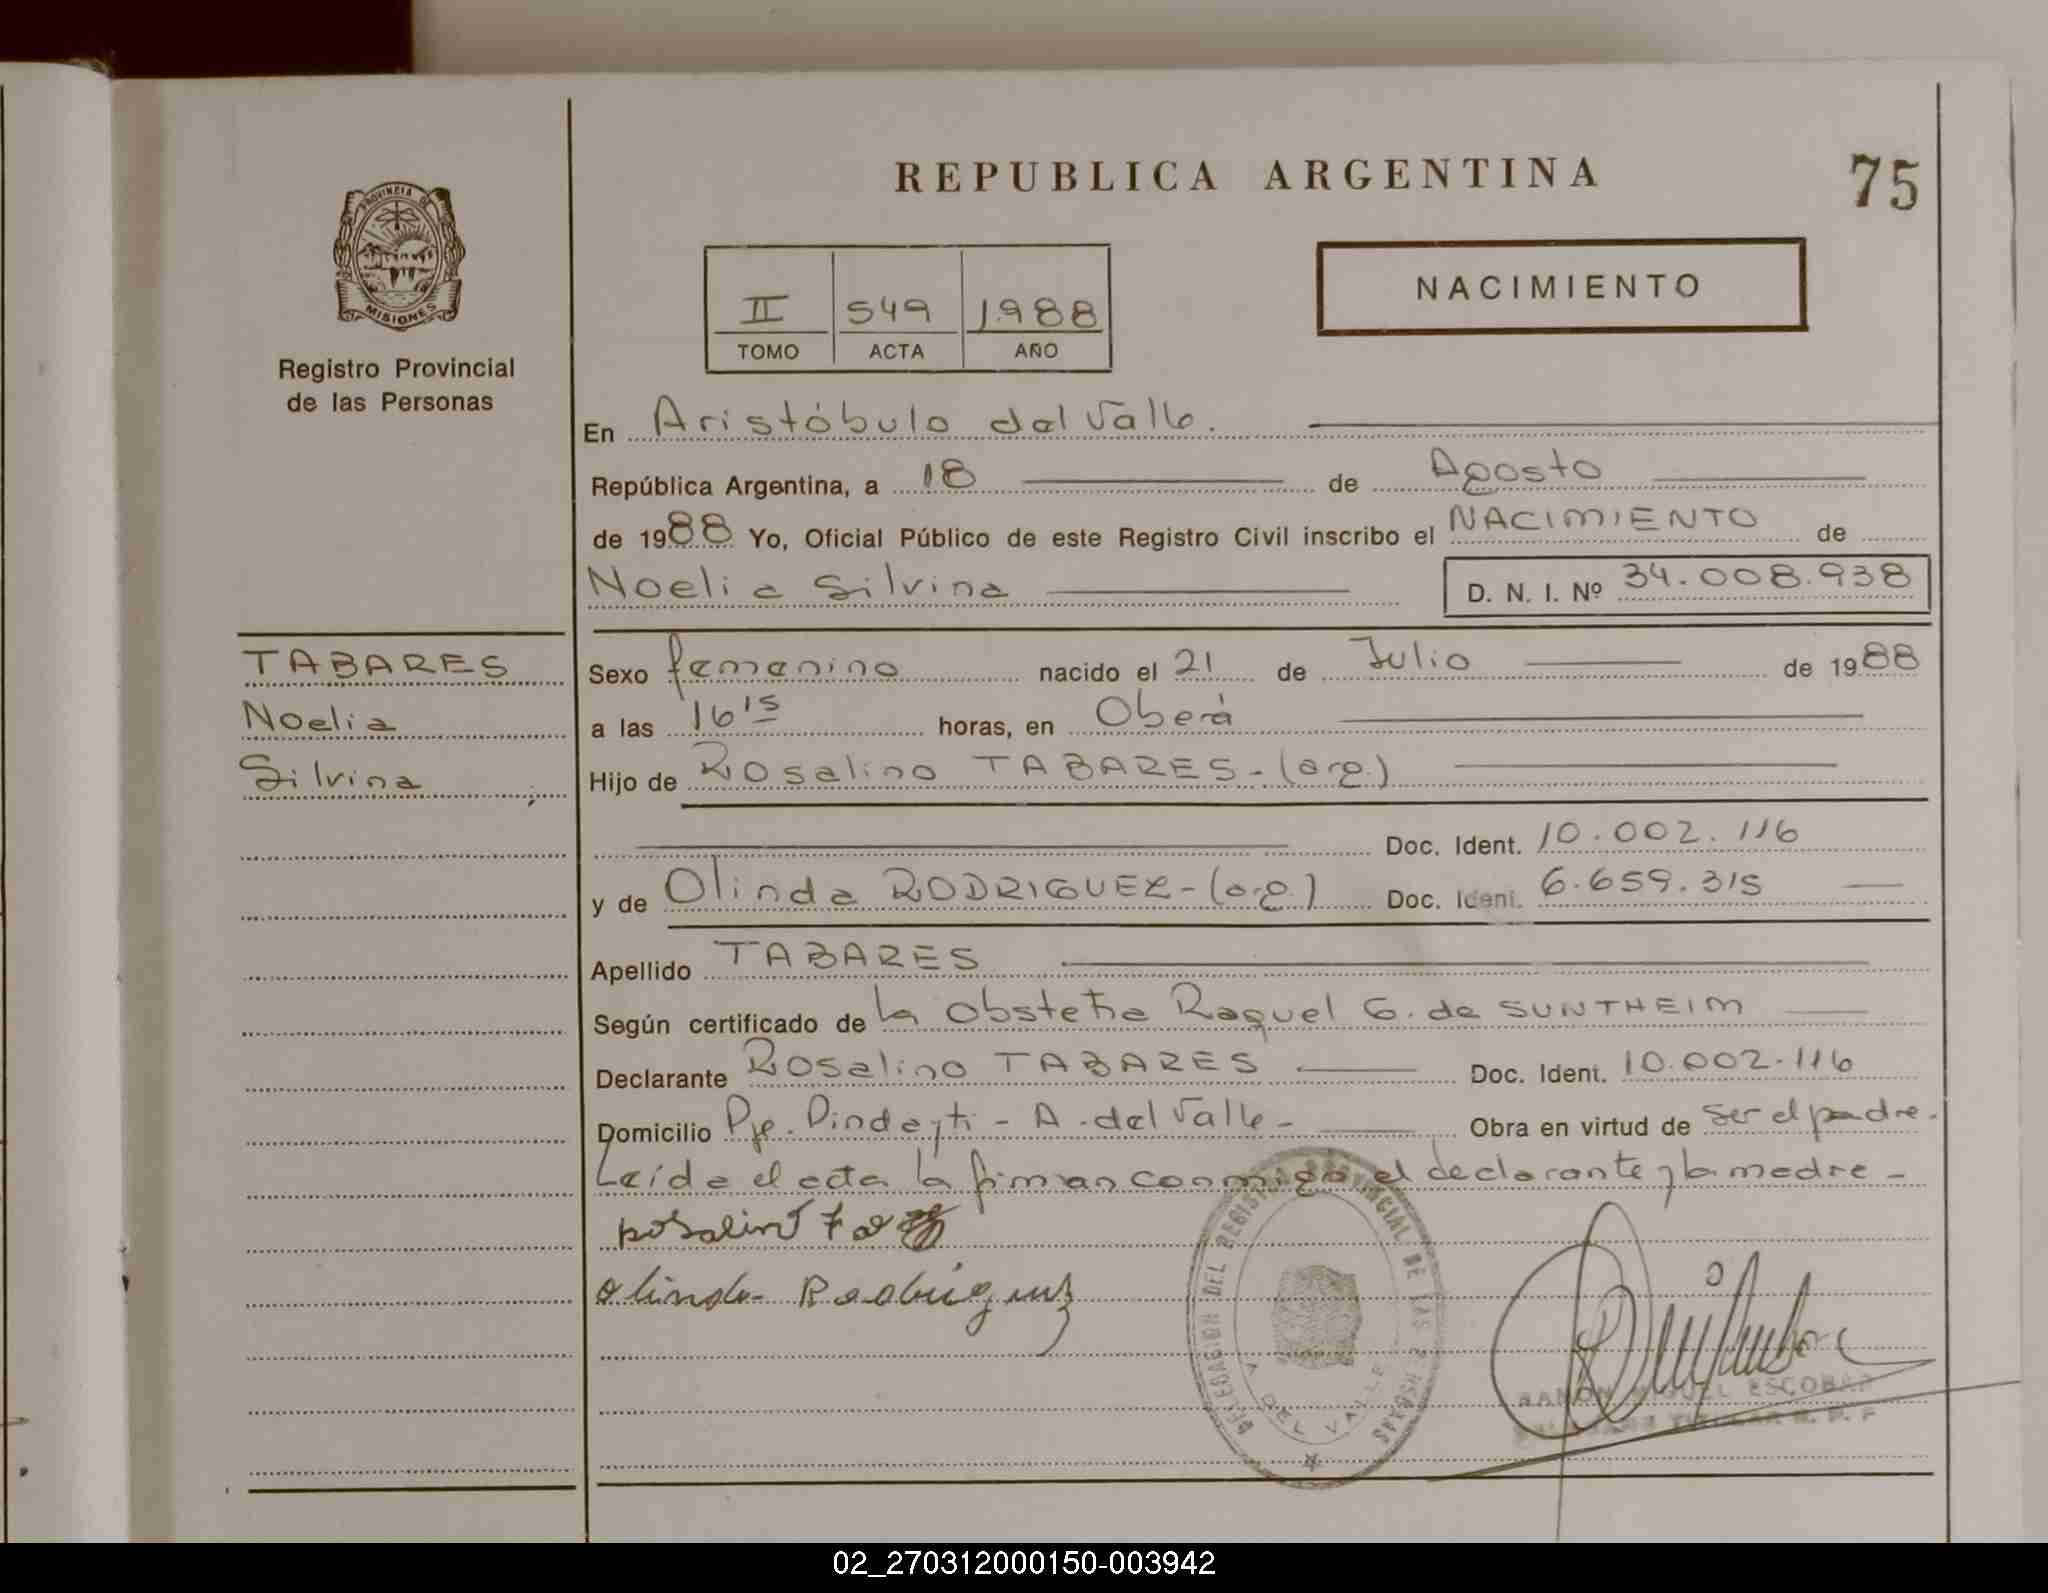 REPUBLICA ARGENTINA
75
PROVINCIA DE
MISIONES
Registro Provincial
de las Personas
II 549 1988
TOMO ACTA AÑO
NACIMIENTO
En Aristóbulo del Valle.
República Argentina, a 18 de Agosto
de 1988 Yo, Oficial Público de este Registro Civil inscribo el NACIMIENTO de
Noelia Silvina D. N. I. Nº 34.008.938
TABARES
Noelia
Silvina
Sexo femenino nacido el 21 de Julio de 1988
a las 16 15 horas, en Oberá
Hijo de Rosalino TABARES-(arg.)
Doc. Ident. 10.002.116
y de Olinda RODRIGUEZ-(arg.) Doc. Ident. 6.659.315
Apellido TABARES
Según certificado de la Obstetra Raquel G. de SUNTHEIM
Declarante Rosalino TABARES Doc. Ident. 10.002.116
Domicilio Pje. Pindayti - A. del Valle- Obra en virtud de ser el padre.
Leída el acta la firman conmigo el declarante y la madre-
Olinda Rodriguez
DELEGACION DEL REGISTRO PROVINCIAL DE LAS PERSONAS
A DEL VALLE
RAMON MIGUEL ESCOBAR
TITULAR R. P. P
02_270312000150-003942